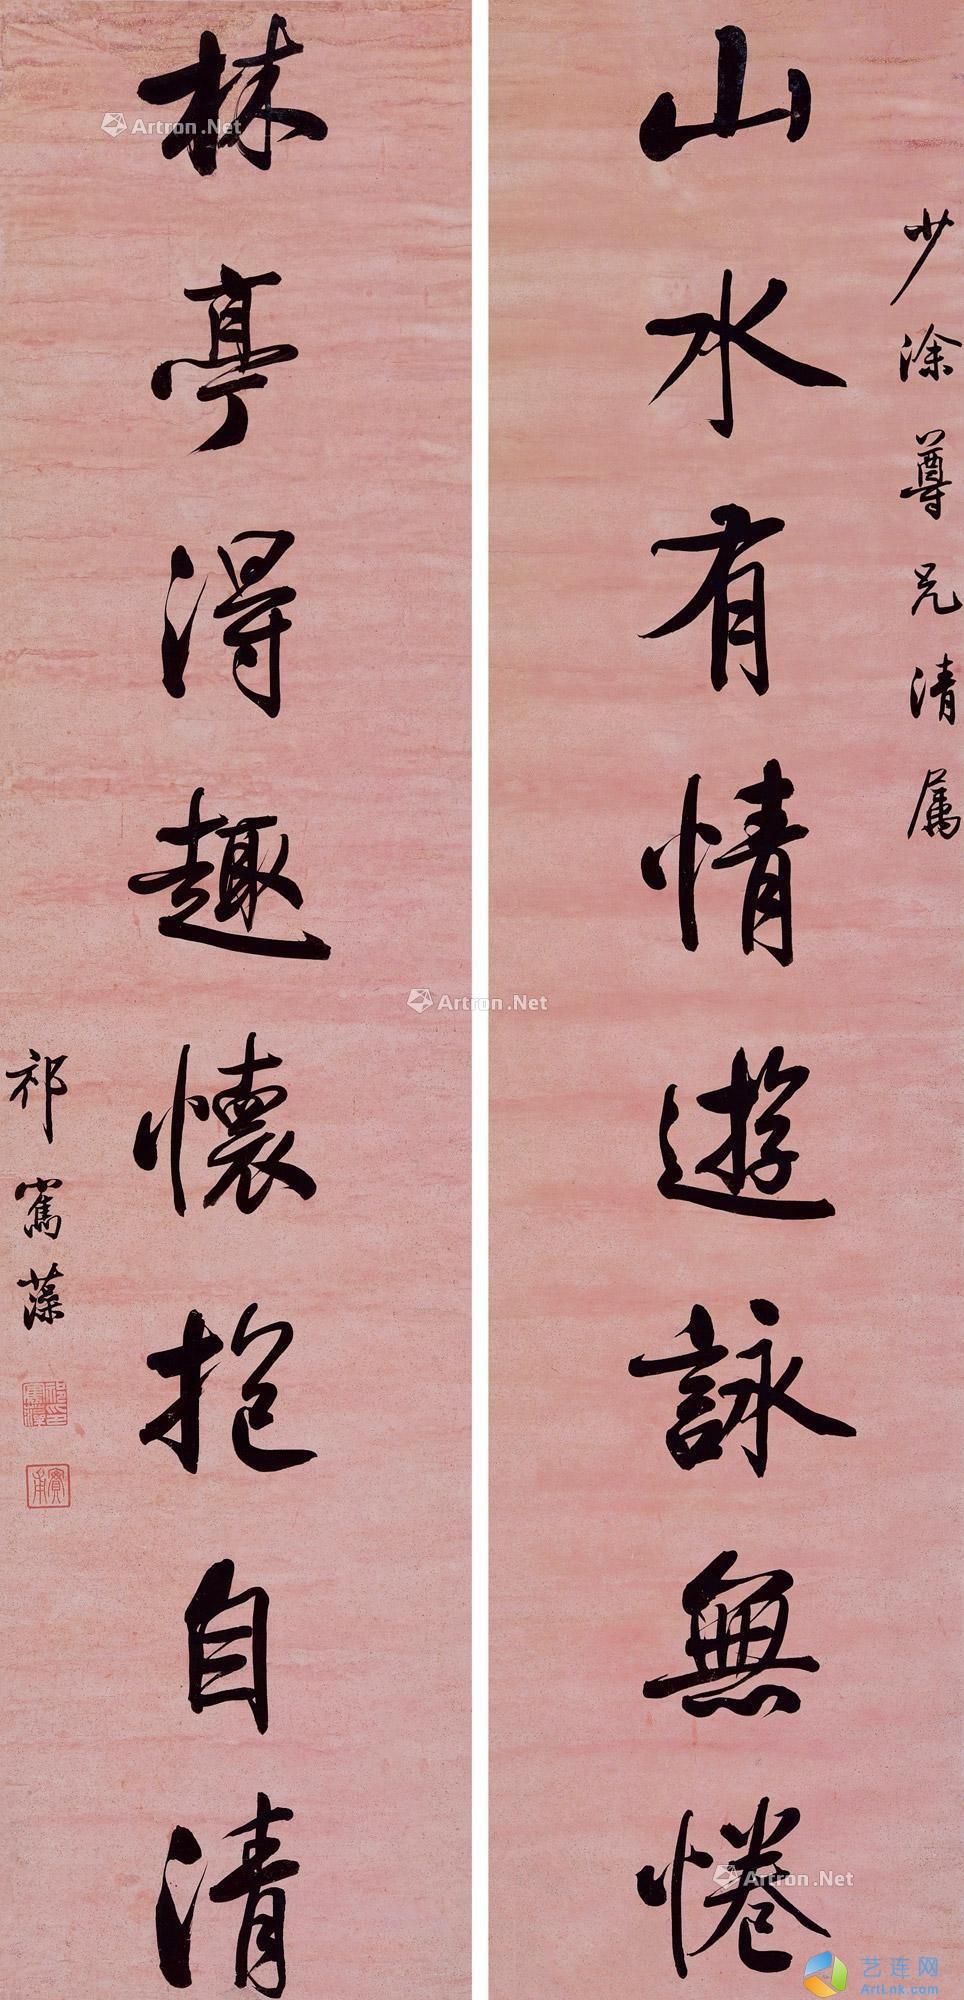 少涂尊兄清属
山水有情遊詠無惓
林亭得趣懷抱自清
祁寯藻
Artron.Net
Artron.Net
Artron.Net
艺连网
ArtLnk.com